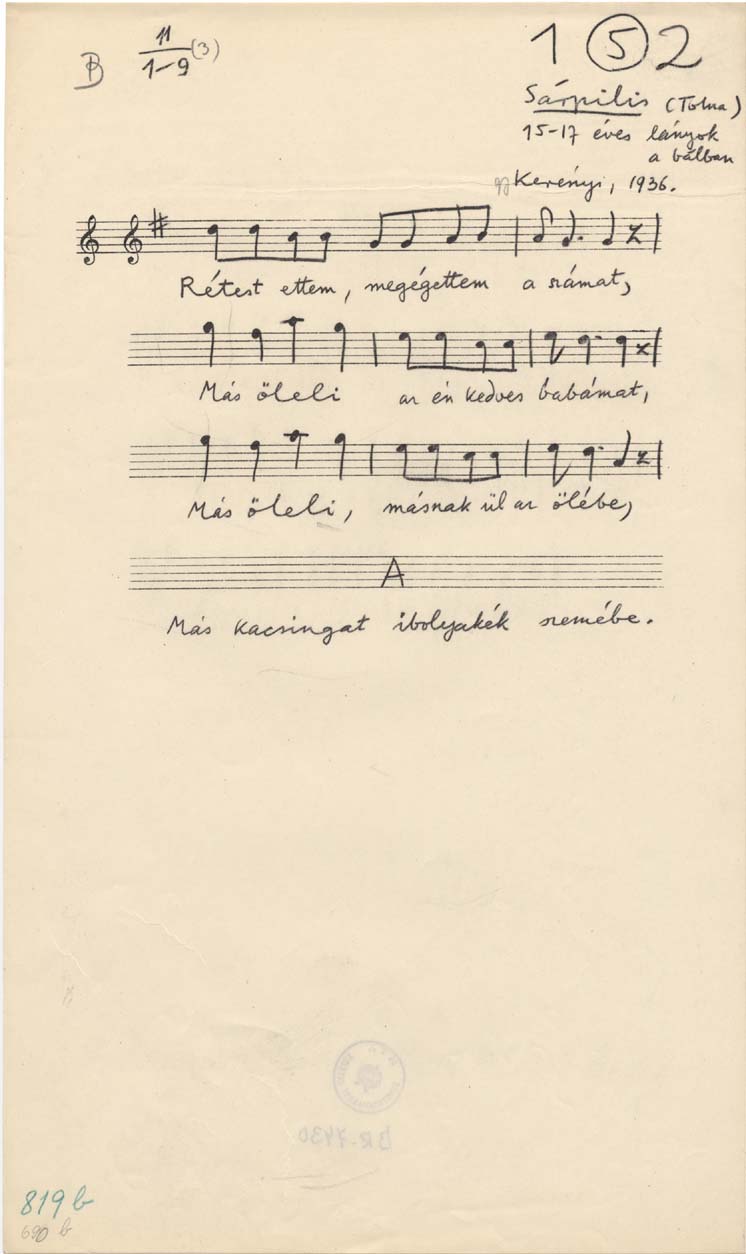 B 11 (3) 1 5 2
1-9
Sárpilis (Tolna)
15-17 éves lányok
a bálban
gy Kerényi, 1936.
Rétest ettem, megégettem a számat,
Más öleli az én kedves babámat,
Más öleli, másnak ül az ölébe,
A
Más kacsingat ibolyakék szemébe.
BR-7430
819 b
690 b